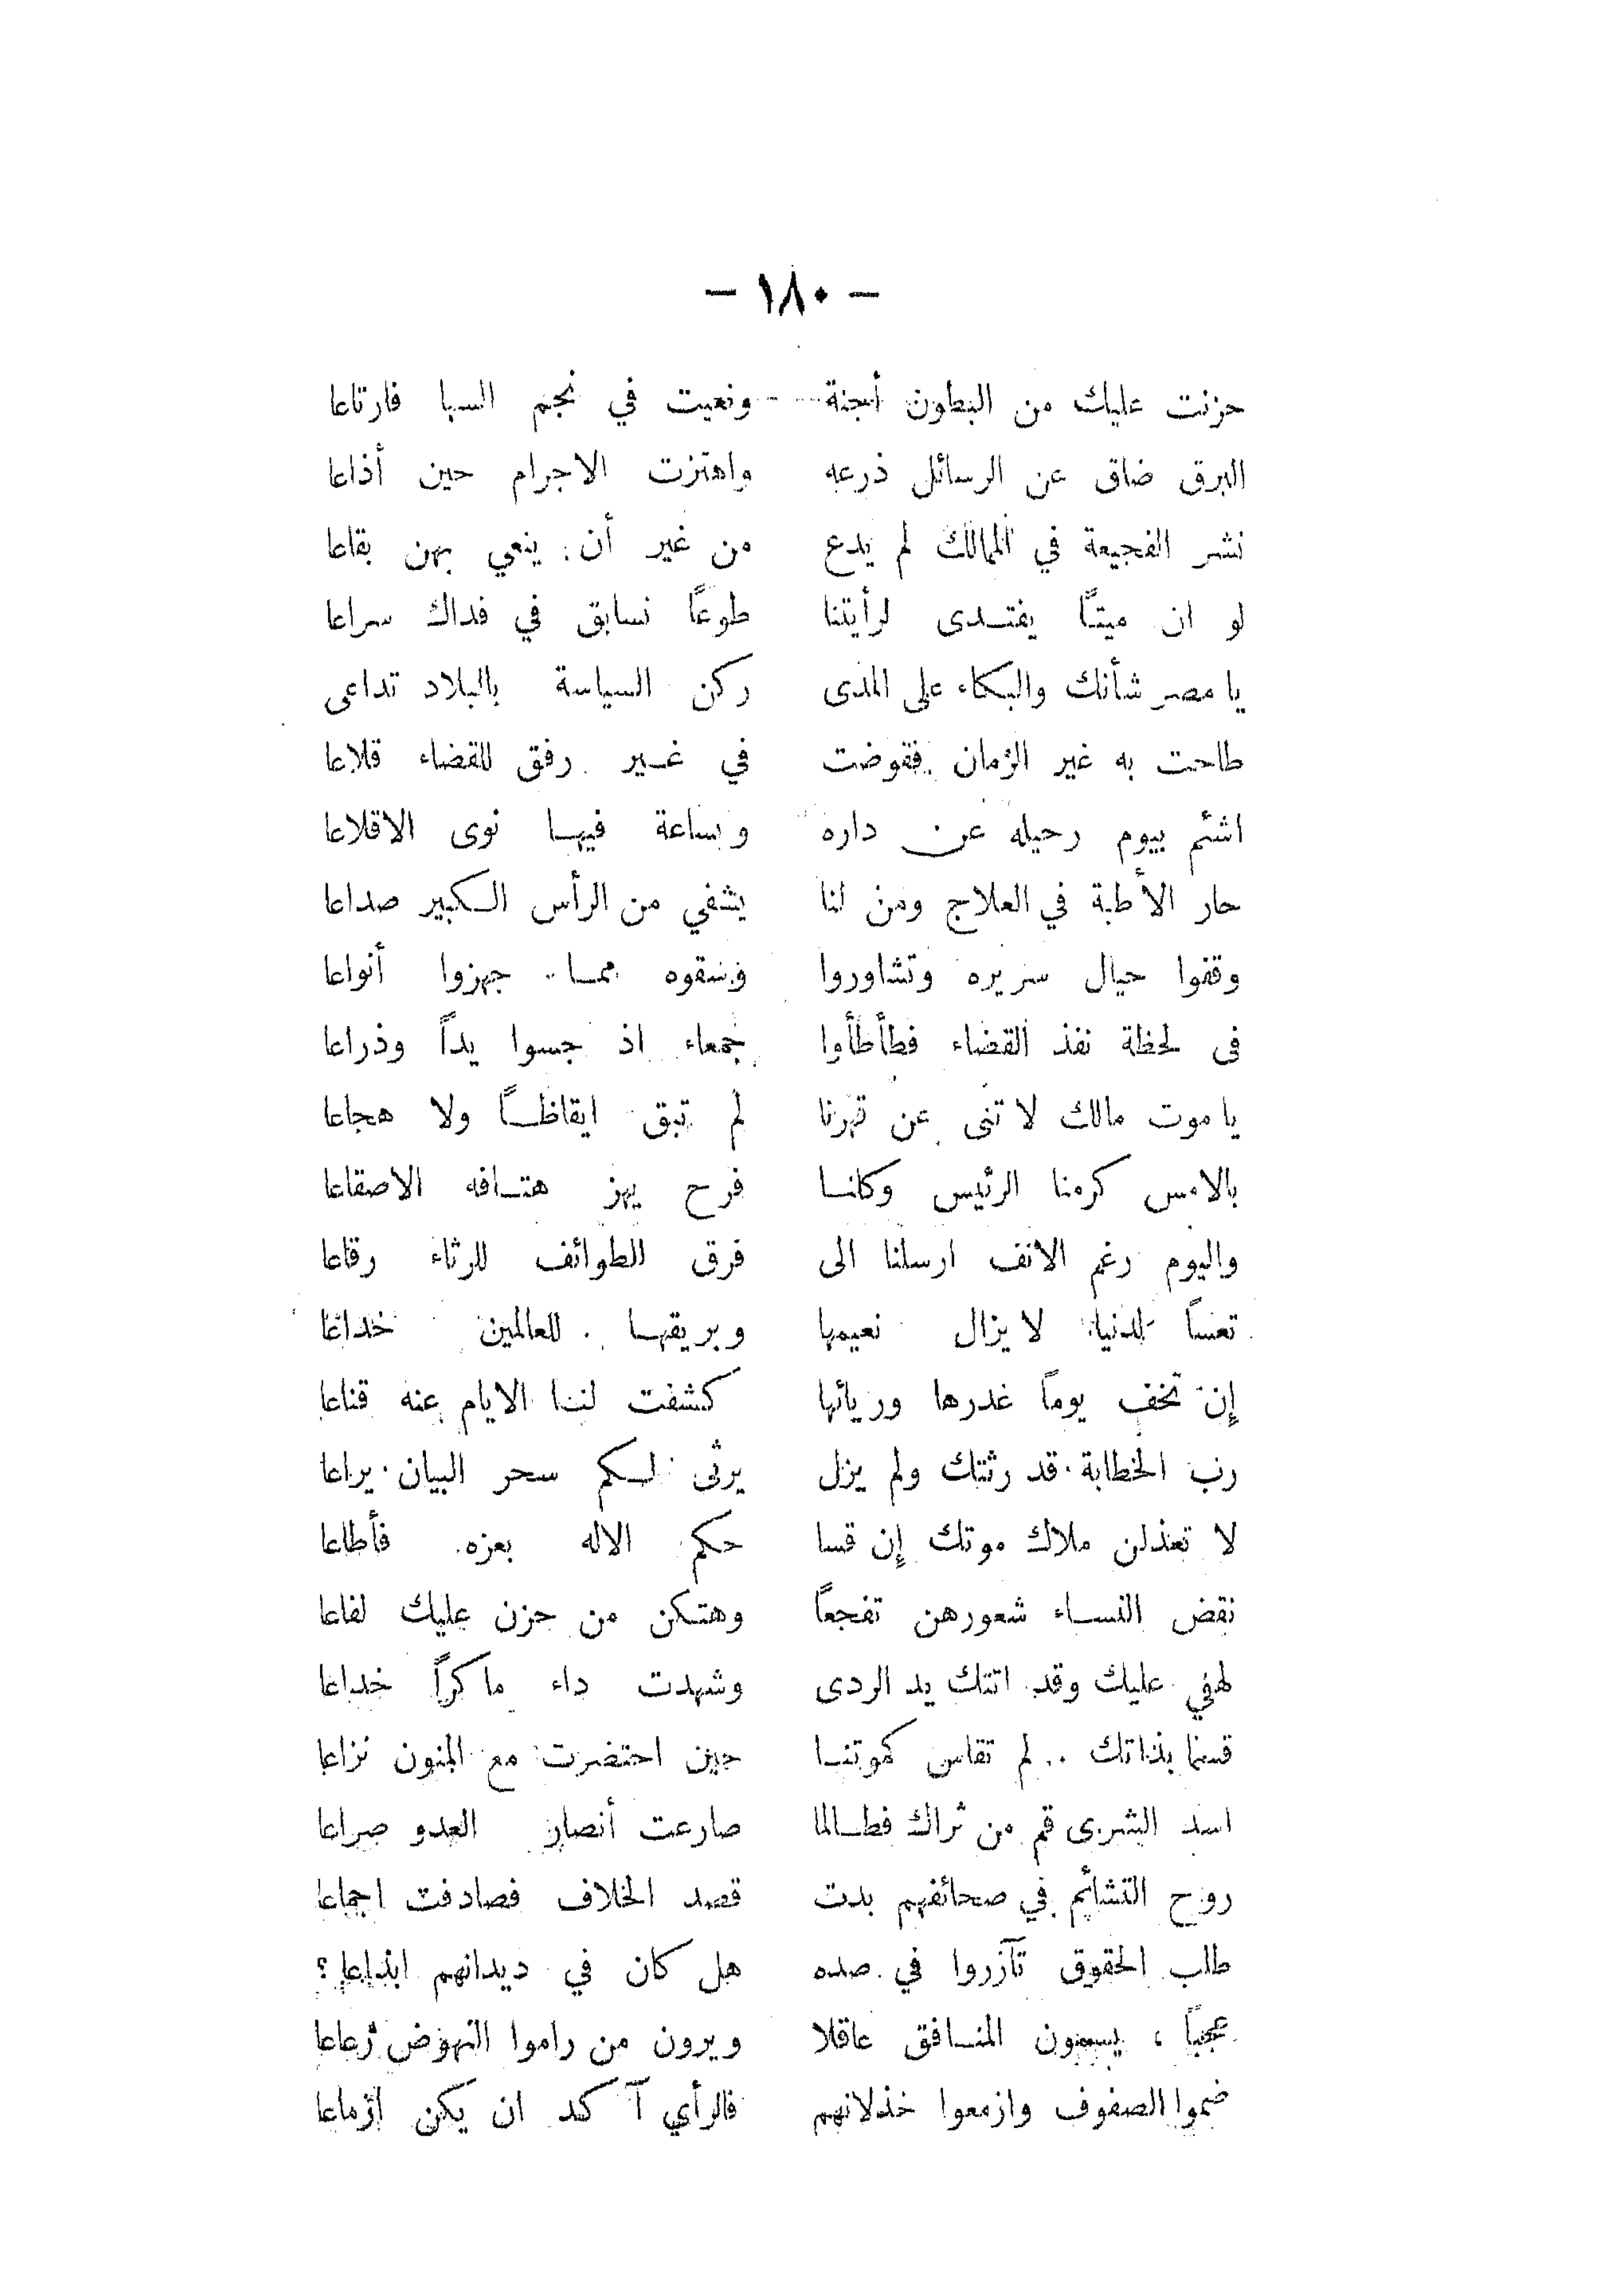 - ١٨٠ -
حزنت عليك من البطون أجنة ونعيت في نجم السبا فارتاعا
البرق ضاق عن الرسائل ذرعه واهتزت الاجرام حين أذاعا
نشر الفجيعة في الممالك لم يدع من غير أن ينعي بهن بقاعا
لو ان ميتاً يفتدى لرأيتنا طوعاً نسابق في فداك سراعا
يا مصر شأنك والبكاء على المدى ركن السياسة بالبلاد تداعى
طاحت به غير الزمان فقوضت في غير رفق للقضاء قلاعا
اشئم بيوم رحيله عن داره وساعة فيها نوى الاقلاعا
حار الأطبة في العلاج ومن لنا يشفي من الرأس الكبير صداعا
وقفوا حيال سريره وتشاوروا وسقوه مما جهزوا أنواعا
فى لحظة نفذ القضاء فطأطأوا جمعاء اذ جسوا يداً وذراعا
يا موت مالك لا تنى عن قهرنا لم تبق ايقاظاً ولا هجاعا
بالامس كرمنا الرئيس وكلنا فرح يهز هتافه الاصقاعا
واليوم رغم الانف ارسلنا الى فرق الطوائف للرثاء رقاعا
تعساً لدنيا لا يزال نعيمها وبريقها للعالمين خداعا
إن تخف يوماً غدرها وريائها كشفت لنا الايام عنه قناعا
رب الخطابة قد رثتك ولم يزل يرثى لكم سحر البيان يراعا
لا تعذلن ملاك موتك إن قسا حكم الاله بعزه فأطاعا
نقض النساء شعورهن تفجعاً وهتكن من حزن عليك لفاعا
لهفي عليك وقد اتتك يد الردى وشهدت داء ماكراً خداعا
قسما بذاتك .. لم تقاس كموتنا حين احتضرت مع المنون نزاعا
اسد الشرى قم من ثراك فطالما صارعت أنصار العدو صراعا
روح التشائم في صحائفهم بدت قصد الخلاف فصادفت اجماعا
طلب الحقوق تآزروا في صده هل كان في ديدانهم ابداعا ؟
عجباً ، يسمون المنافق عاقلا ويرون من راموا النهوض رعاعا
ضموا الصفوف وازمعوا خذلانهم فالرأي آكد ان يكن ازماعا